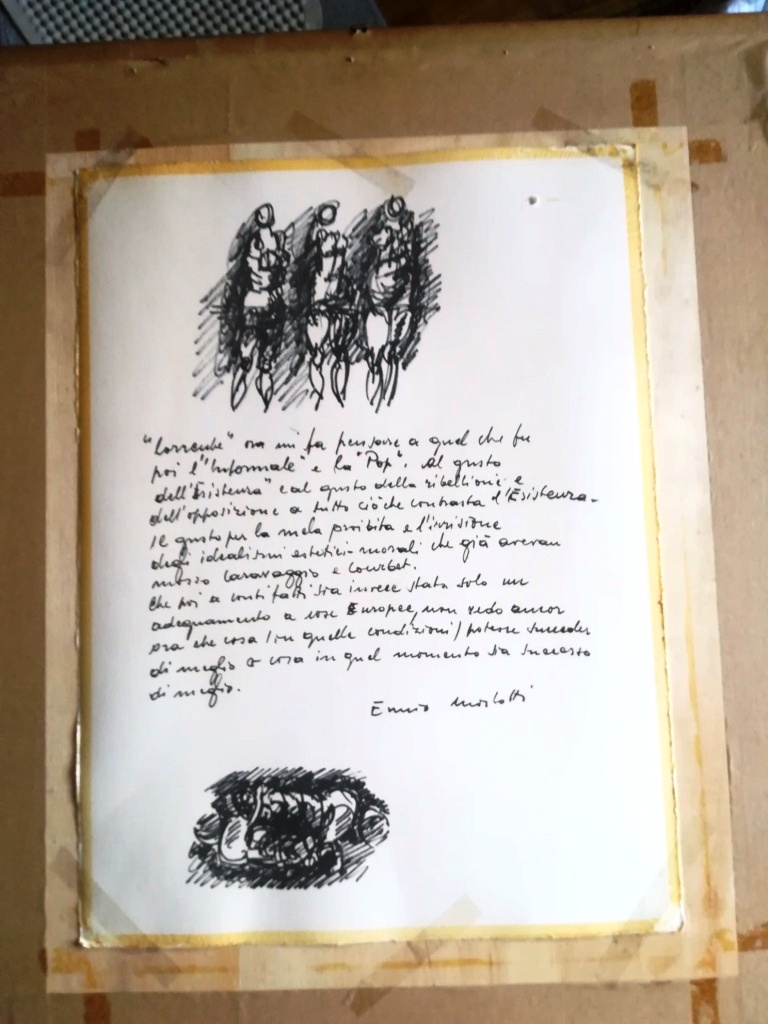 "Corrente" ora mi fa pensare a quel che fu
poi l'"Informale" e la "Pop". Al gusto
dell'"Esistenza" e al gusto della ribellione e
dell'opposizione a tutto ciò che contrasta l'Esistenza.
Il gusto per la mela proibita e l'irrisione
degli idealismi estetici-morali che già avevan
mosso Caravaggio e Courbet.
Che poi a conti fatti sia invece stata solo un
adeguamento a cose Europee, non vedo ancor
ora che cosa (in quelle condizioni) potesse succeder
di meglio o cosa in quel momento sia successo
di meglio.
Ennio Morlotti